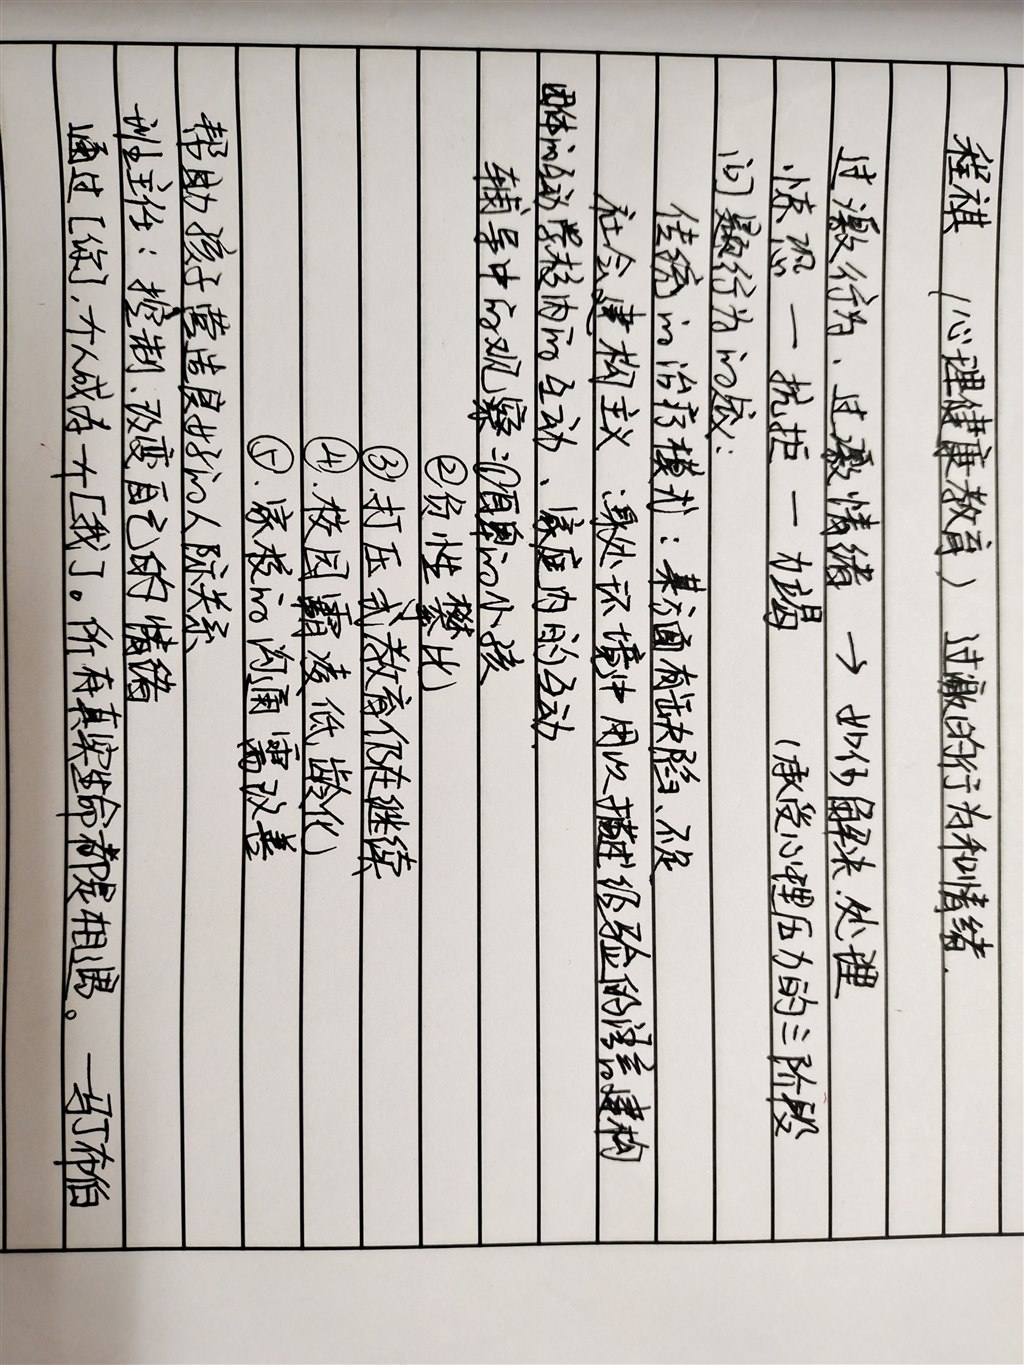 程祺 (心理健康教育) 过激的行为和情绪.
过激行为、过激情绪 → 如何解决.处理
惊恐 — 抗拒 — 力竭 (承受心理压力的三阶段
问题行为的成:
传统的治疗模式:某方面有缺陷、不足
社会建构主义 .身处环境中用以描述经验的语言的建构
团体的互动 学校内的互动、家庭内的互动.
辅导中的观察:①顶真的小孩
②个性攀比
③.打压式教育仍在继续
④.校园霸凌低龄化
⑤.家校的沟通需改善
帮助孩子营造良好的人际关系
班主任:控制.改变自己的情绪
通过[您],个人成为一个[我]。所有真实生命都是相遇。—马丁布伯